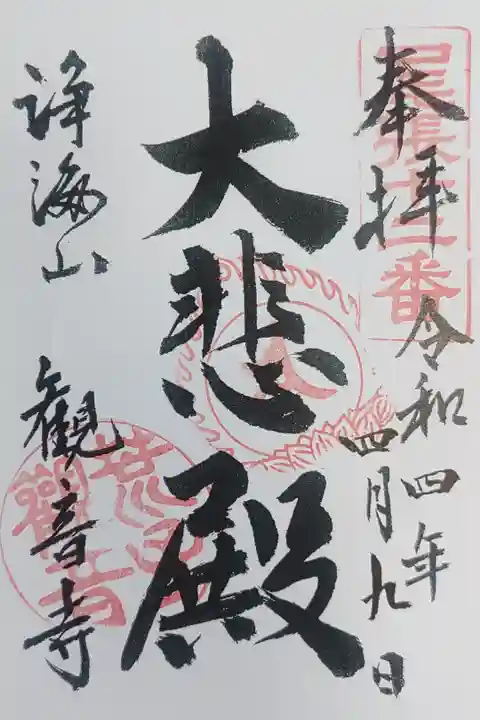 奉拝
令和四年
四月九日
大悲殿
浄海山 観音寺